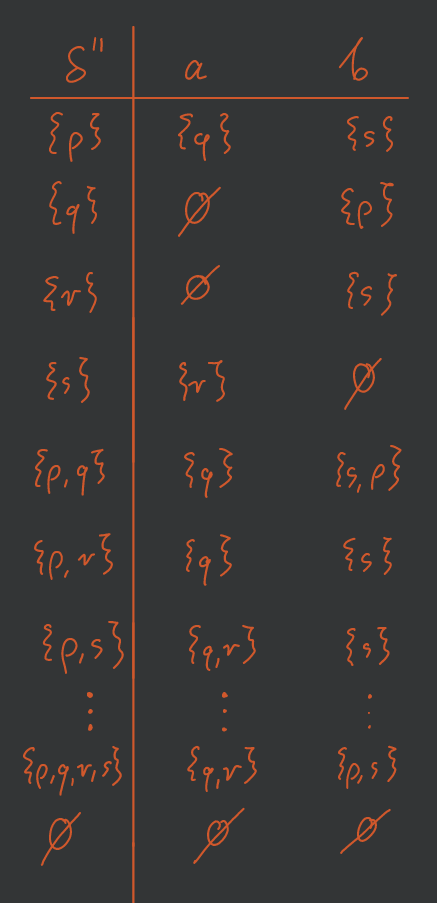 δ'' a b
{p} {q} {s}
{q} ∅ {p}
{r} ∅ {s}
{s} {r} ∅
{p,q} {q} {s,p}
{p,r} {q} {s}
{p,s} {q,r} {s}
⋮ ⋮ ⋮
{p,q,r,s} {q,r} {p,s}
∅ ∅ ∅